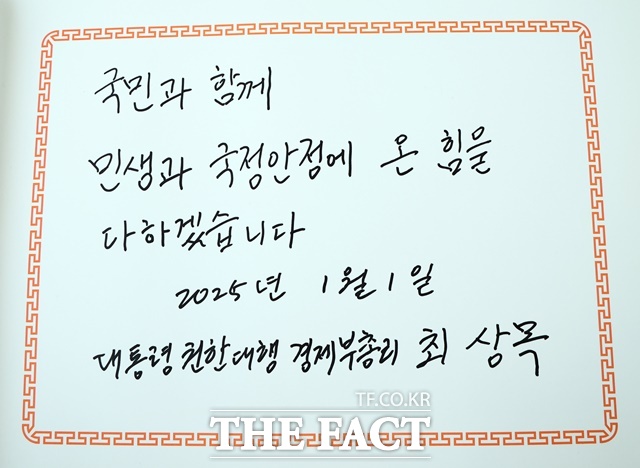 국민과 함께
민생과 국정안정에 온 힘을
다하겠습니다
2025년 1월 1일
대통령 권한대행 경제부총리 최상목
TF.CO.KR
THE FACT